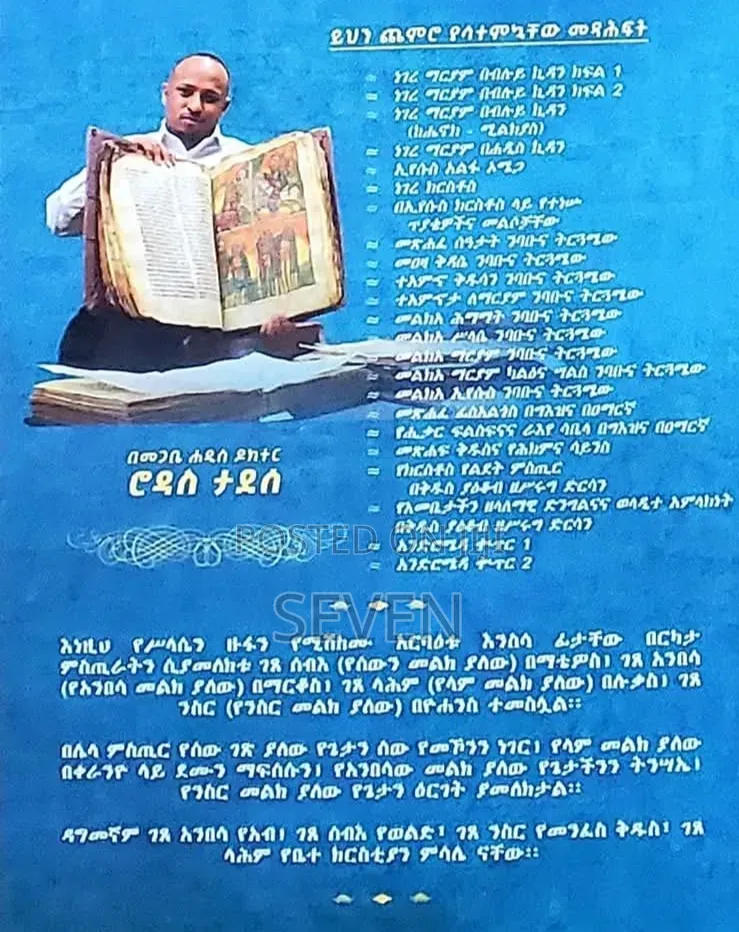 ይህን ጨምሮ የሳተምኳቸው መጻሕፍት
≈ ነገረ ማርያም በብሉይ ኪዳን ክፍል 1
≈ ነገረ ማርያም በብሉይ ኪዳን ክፍል 2
≈ ነገረ ማርያም በብሉይ ኪዳን
(ከሔኖክ - ሚልክያስ)
≈ ነገረ ማርያም በሐዲስ ኪዳን
≈ ኢየሱስ አልፋ ኦሜጋ
≈ ነገረ ክርስቶስ
≈ በኢየሱስ ክርስቶስ ላይ የተነሡ
ጥያቄዎችና መልሶቻቸው
≈ መጽሐፈ ሰዓታት ንባቡና ትርጓሜው
≈ መዐዛ ቅዳሴ ንባቡና ትርጓሜው
≈ ተአምኖ ቅዱሳን ንባቡና ትርጓሜው
≈ ተአምኖታ ለማርያም ንባቡና ትርጓሜው
≈ መልክአ ሕማማት ንባቡና ትርጓሜው
≈ መልክአ ሥላሴ ንባቡና ትርጓሜው
≈ መልክአ ማርያም ንባቡና ትርጓሜው
≈ መልክአ ማርያም ካልዕና ሣልስ ንባቡና ትርጓሜው
≈ መልክአ ኢየሱስ ንባቡና ትርጓሜው
≈ መጽሐፈ ፊስአልጎስ በግእዝና በዐማርኛ
≈ የሒቃር ፍልስፍናና ራእየ ሳቤላ በግእዝና በዐማርኛ
≈ መጽሐፍ ቅዱስና የሕክምና ሳይንስ
≈ የክርስቶስ የልደት ምስጢር
በቅዱስ ያዕቆብ ዘሥሩግ ድርሳን
≈ የእመቤታችን ዘላለማዊ ድንግልናና ወላዲተ አምላክነት
በቅዱስ ያዕቆብ ዘሥሩግ ድርሳን
≈ አንድሮሜዳ ቍጥር 1
≈ አንድሮሜዳ ቍጥር 2
በመጋቤ ሐዲስ ዶክተር
ሮዳስ ታደሰ
POSTED ON JIJI
SEVEN
እነዚህ የሥላሴን ዙፋን የሚሸከሙ አርባዕቱ እንስሳ ፊታቸው በርካታ
ምስጢራትን ሲያመለክቱ ገጸ ሰብእ (የሰውን መልክ ያለው) በማቴዎስ፤ ገጸ አንበሳ
(የአንበሳ መልክ ያለው) በማርቆስ፤ ገጸ ላሕም (የላም መልክ ያለው) በሉቃስ፤ ገጸ
ንስር (የንስር መልክ ያለው) በዮሐንስ ተመስሏል።
በሌላ ምስጢር የሰው ገጽ ያለው የጌታን ሰው የመኾንን ነገር፤ የላም መልክ ያለው
በቀራንዮ ላይ ደሙን ማፍሰሱን፤ የአንበሳው መልክ ያለው የጌታችንን ትንሣኤ፤
የንስር መልክ ያለው የጌታን ዕርገት ያመለክታል።
ዳግመኛም ገጸ አንበሳ የአብ፤ ገጸ ሰብእ የወልድ፤ ገጸ ንስር የመንፈስ ቅዱስ፤ ገጸ
ላሕም የቤተ ክርስቲያን ምሳሌ ናቸው።